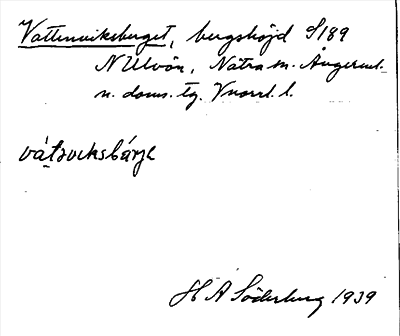 Vattenviksberget, bergshöjd S/189
N Ulvön, Nätra sn. Ångerml.
n. doms. tg. Vnorrl. l.
våtəviksbárjə
H A Söderberg 1939